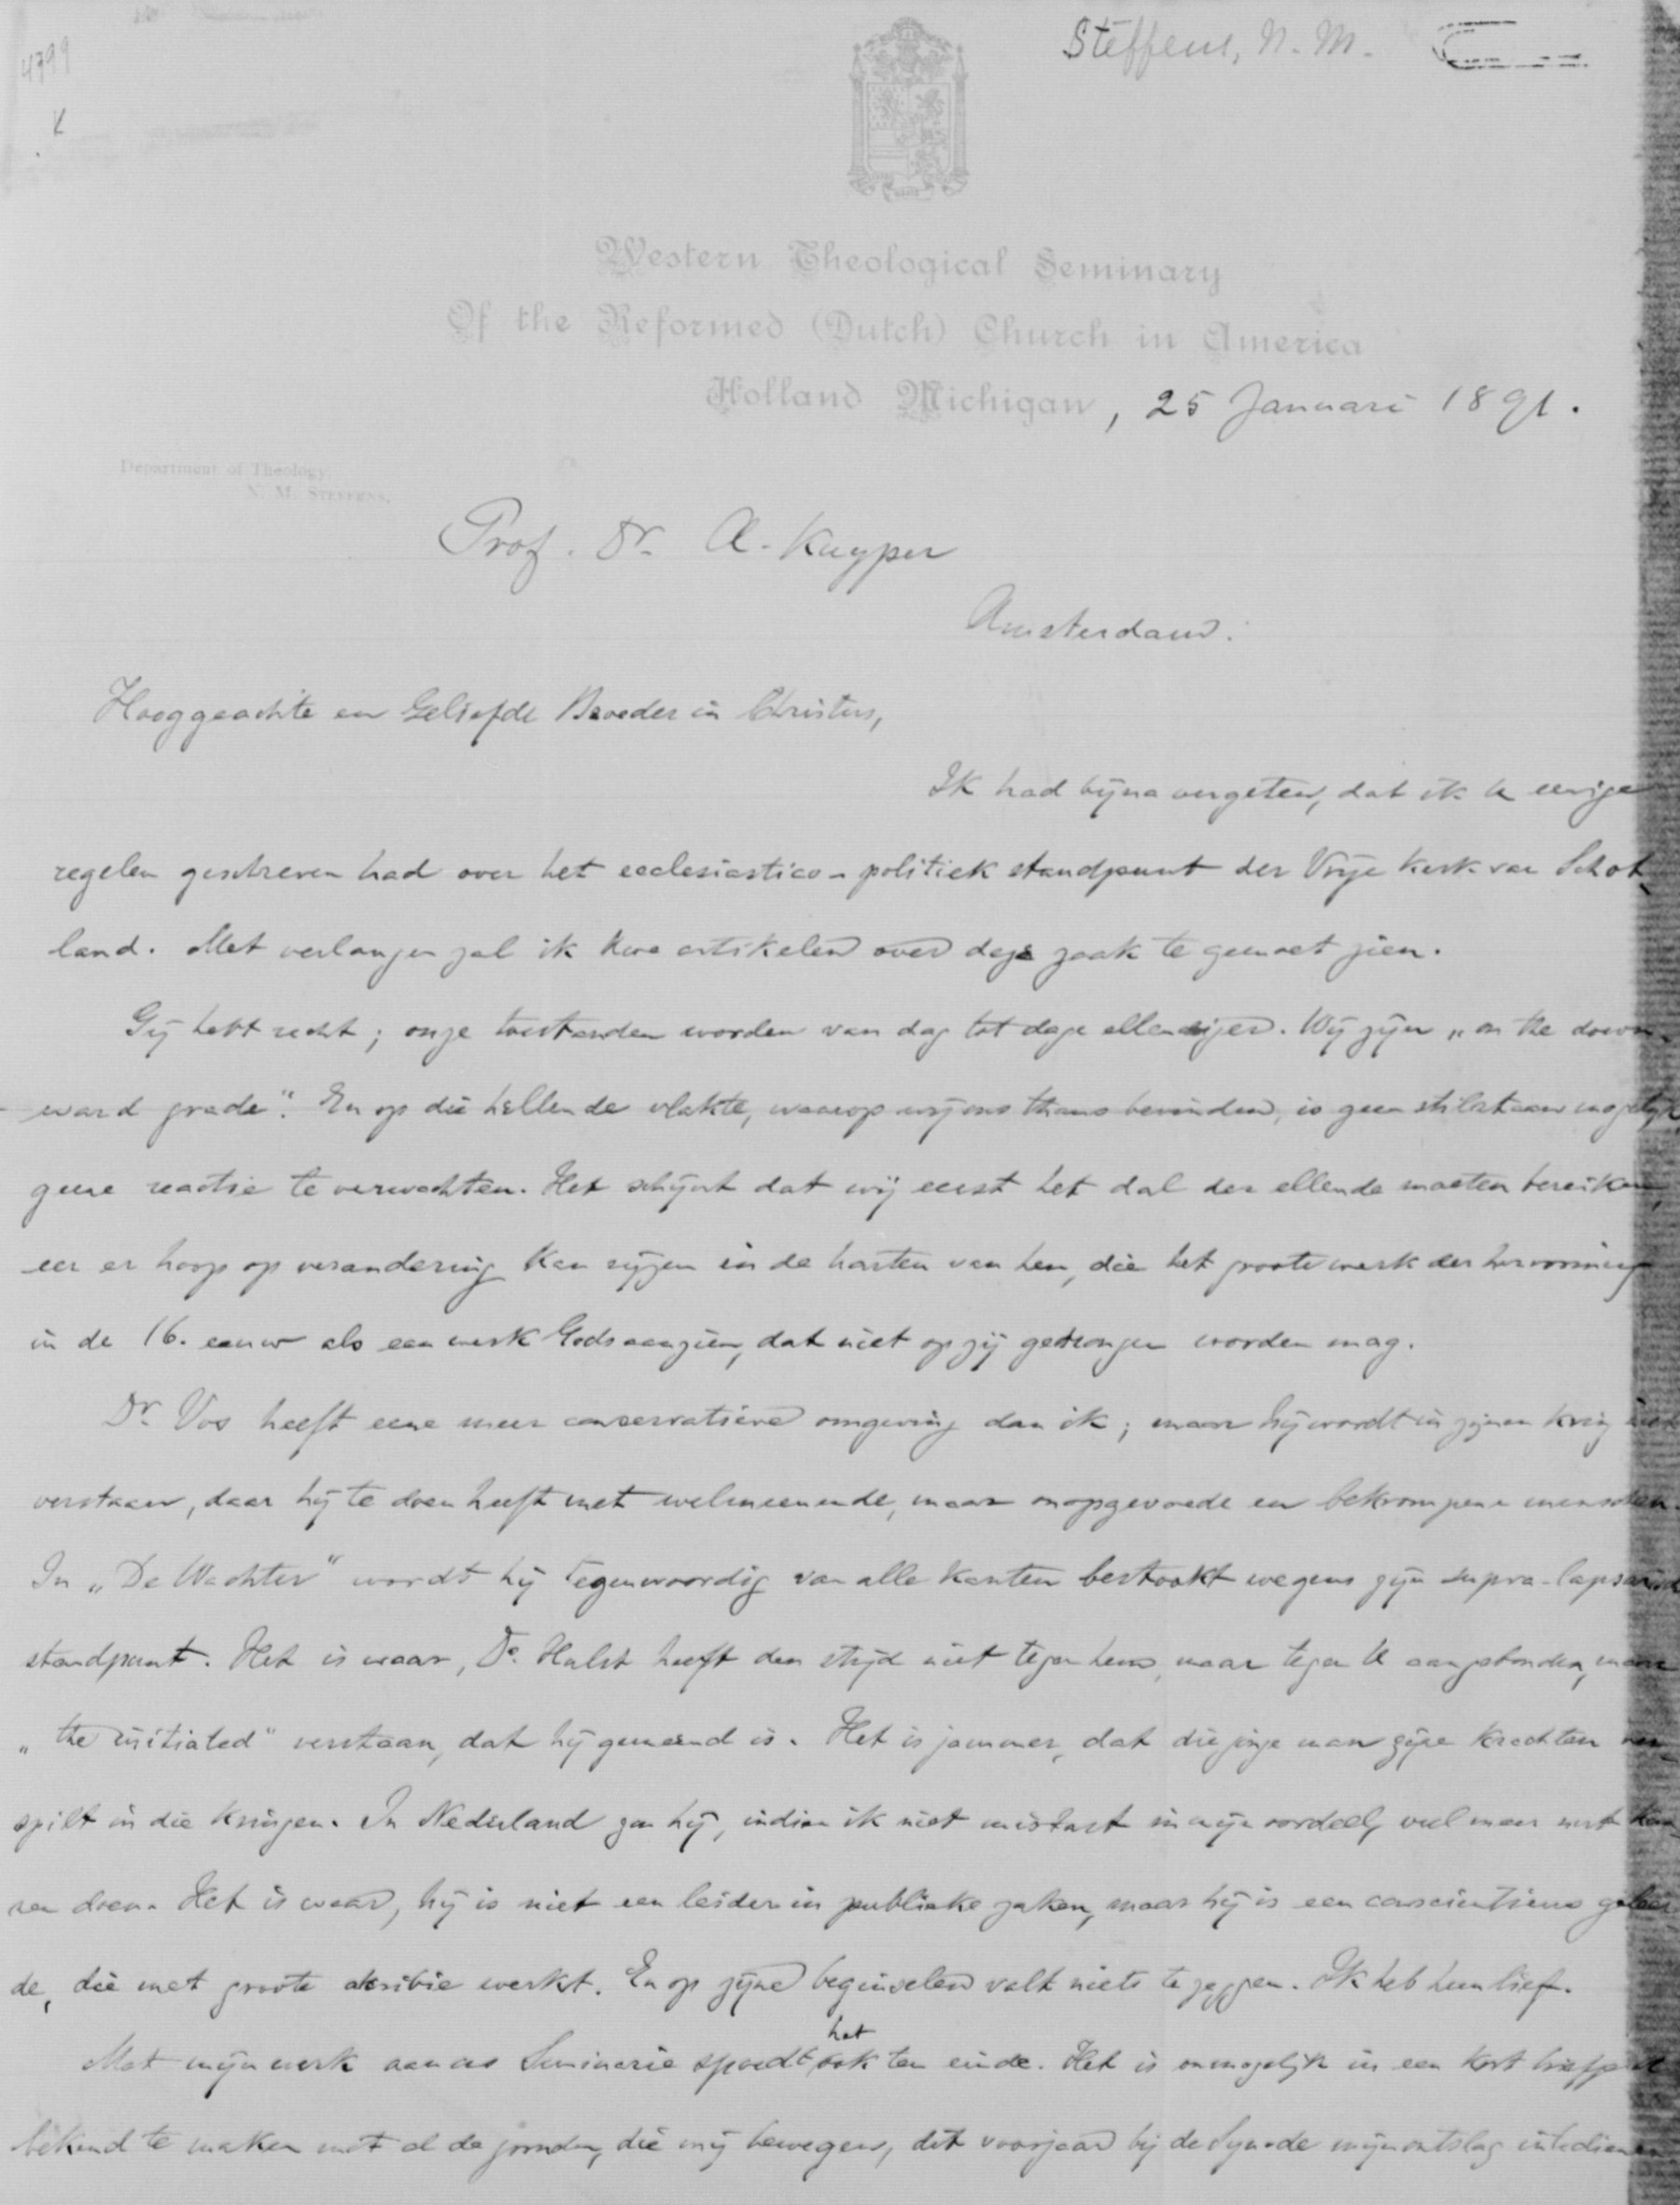 4799
Steffens, N. M.
Western Theological Seminary
Of the Reformed (Dutch) Church in America
Holland Michigan, 25 Januari 1891.
Department of Theology.
N. M. STEFFENS.
Prof. Dr. A. Kuyper
Amsterdam.
Hooggeachte en Geliefde Broeder in Christus,
Ik had bijna vergeten, dat ik U eenige
regelen geschreven had over het ecclesiastico-politiek standpunt der Vrije Kerk van Schot-
land. Met verlangen zal ik Uwe artikelen over deze zaak te gemoet zien.
Gij hebt recht; onze toestanden worden van dag tot dage ellendiger. Wij zijn „on the down-
ward grade". En op die hellende vlakte, waarop wij ons thans bevinden, is geen stilstaan mogelijk,
geene reactie te verwachten. Het schijnt dat wij eerst het dal der ellende moeten bereiken,
eer er hoop op verandering kan rijzen in de harten van hen, die het groote werk der hervorming
in de 16. eeuw als een werk Gods aanzien, dat niet op zij gedrongen worden mag.
Dr. Vos heeft eene meer conservatieve omgeving dan ik; maar hij wordt in zijnen kring niet
verstaan, daar hij te doen heeft met welmeenende, maar onopgevoede en bekrompene menschen.
In „De Wachter" wordt hij tegenwoordig van alle kanten bestookt wegens zijn supra-lapsarisch
standpunt. Het is waar, Ds. Hulst heeft den strijd niet tegen hem, maar tegen U aangebonden, maar
„the initiated" verstaan, dat hij gemeend is. Het is jammer, dat die jonge man zijne krachten ver-
spilt in die kringen. In Nederland zou hij, indien ik niet mistast in mijn oordeel, veel meer nut kun-
nen doen. Het is waar, hij is niet een leider in publieke zaken, maar hij is een conscientieus geleer-
de, die met groote akribie werkt. En op zijne beginselen valt niets te zeggen. Ik heb hem lief.
Met mijn werk aan ons Seminarie spoedt het ook ten einde. Het is onmogelijk in een kort bestek U
bekend te maken met al de gronden, die mij bewegen, dit voorjaar bij de Synode mijn ontslag in te dienen